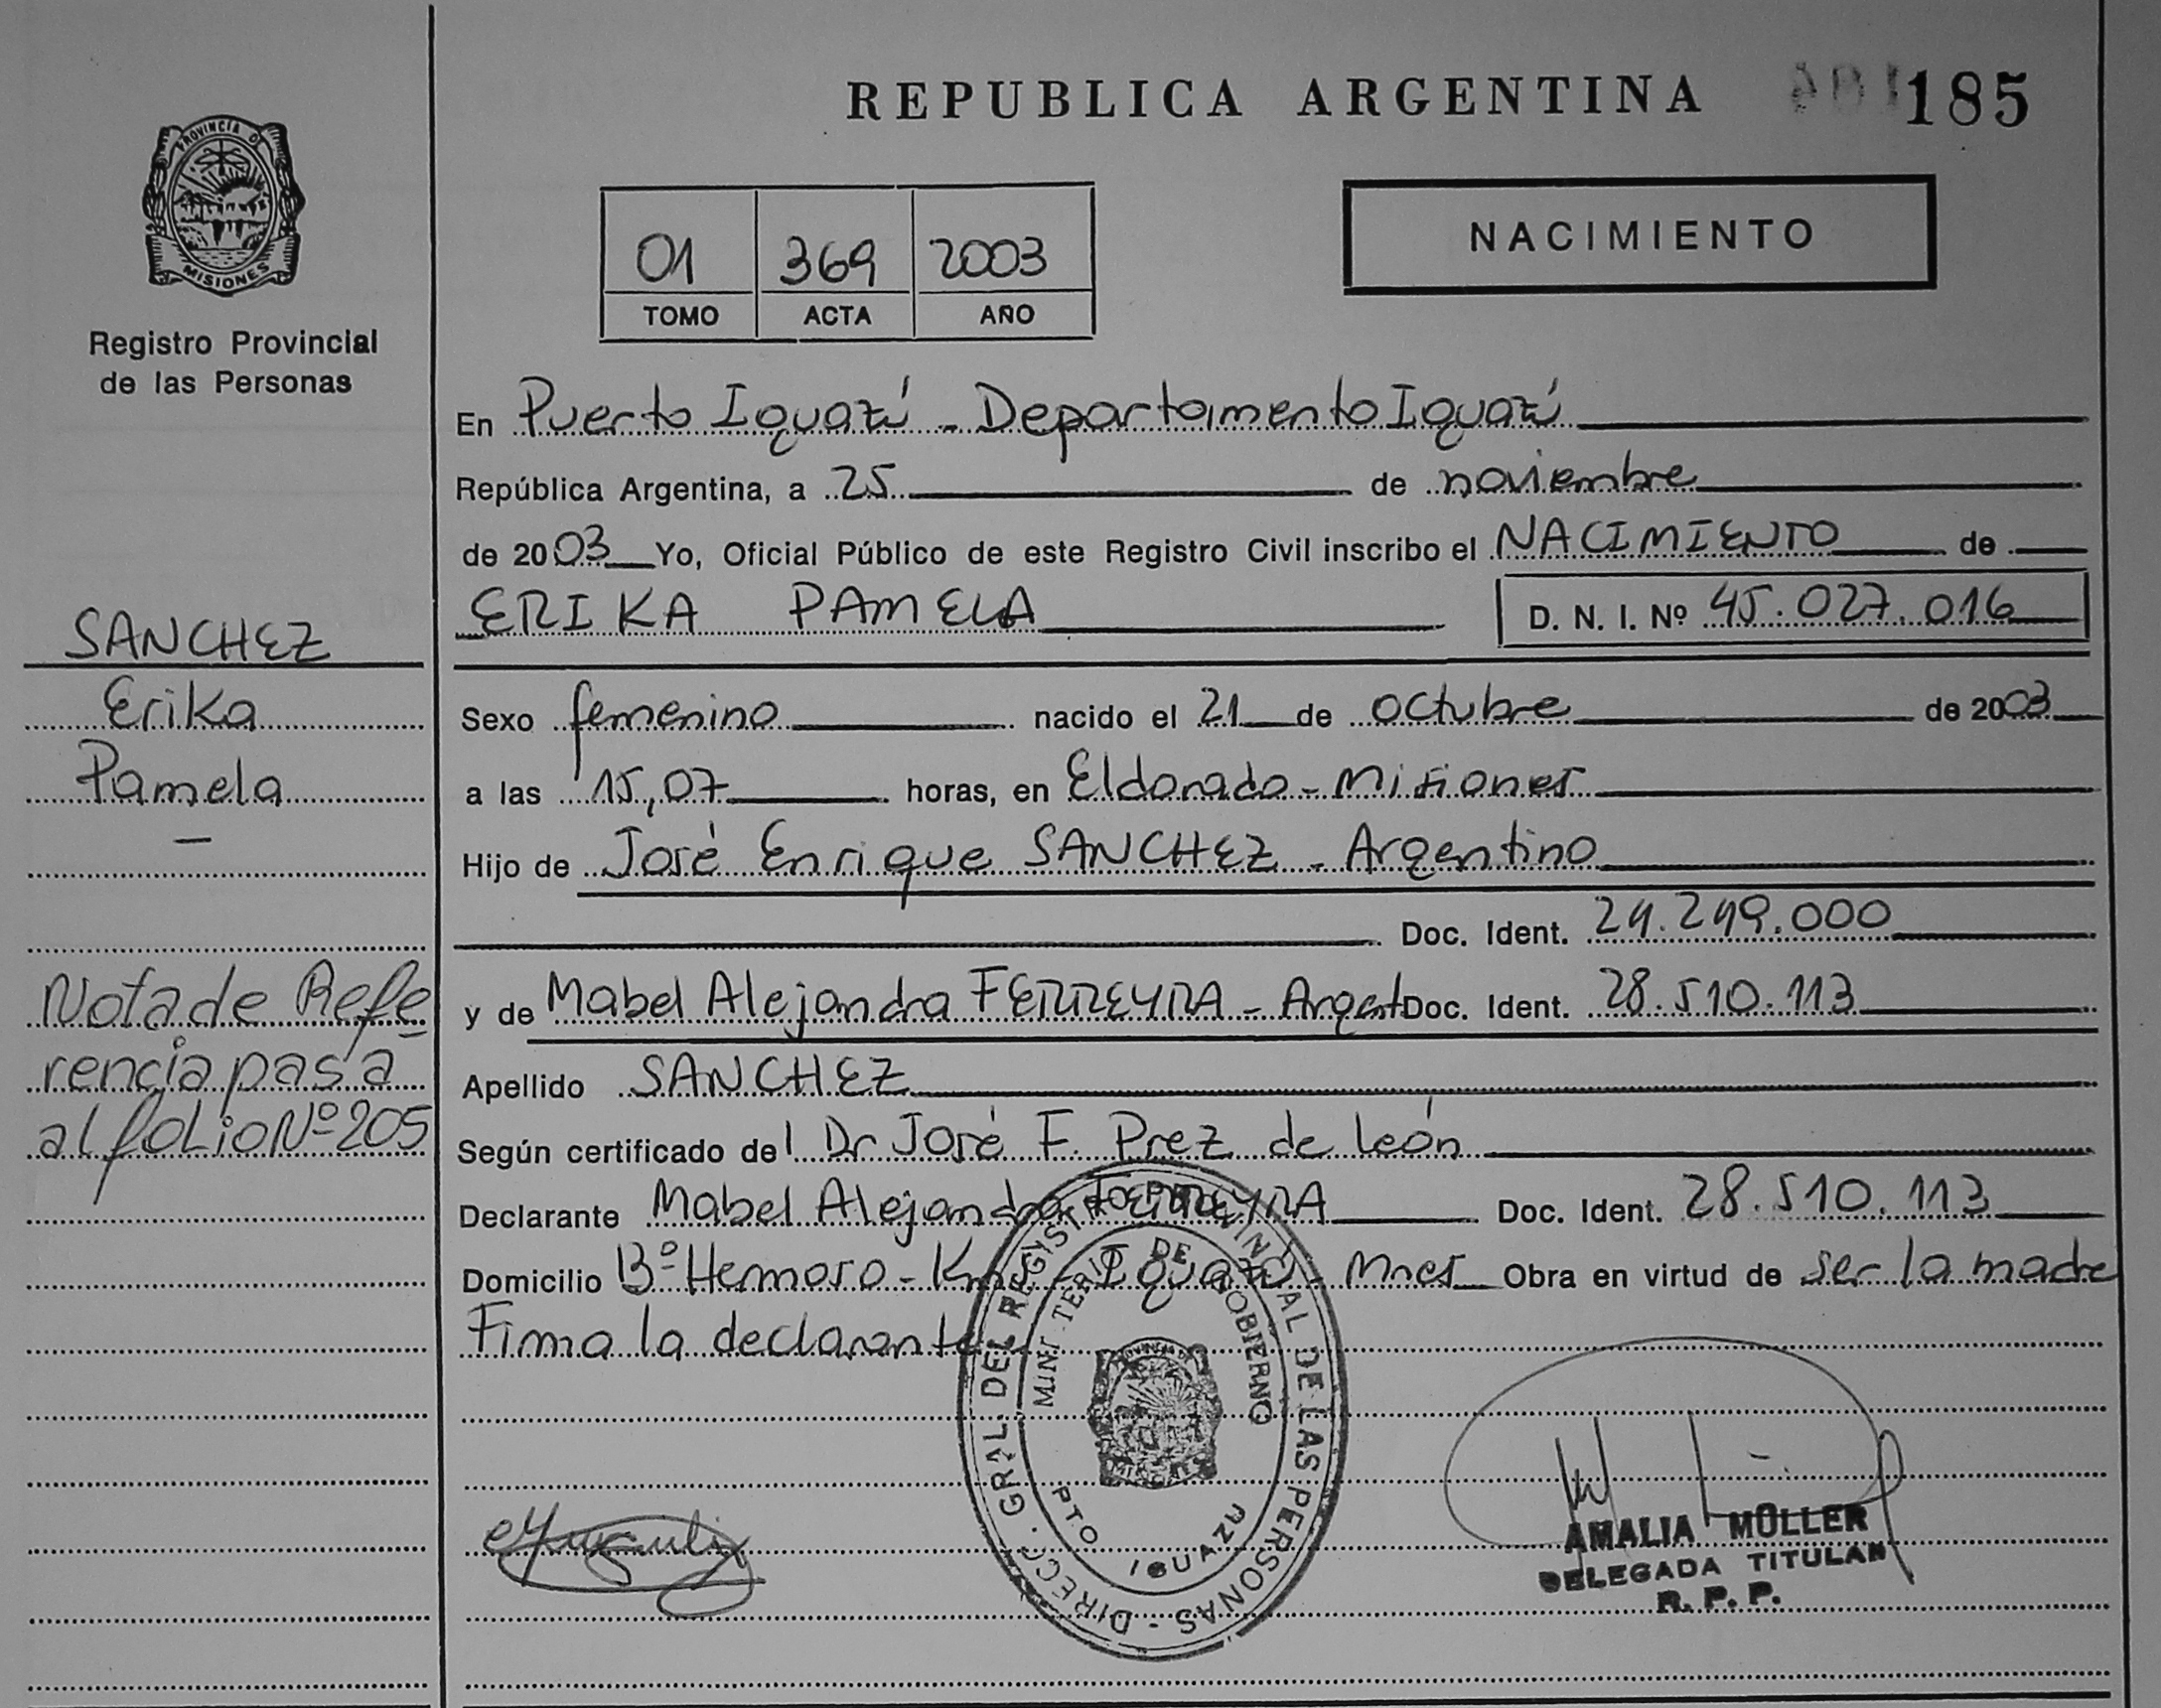 REPUBLICA ARGENTINA 185
PROVINCIA DE
MISIONES
Registro Provincial
de las Personas
01 369 2003
TOMO ACTA AÑO
NACIMIENTO
En Puerto Iguazú - Departamento Iguazú
República Argentina, a 25 de noviembre
de 2003 Yo, Oficial Público de este Registro Civil inscribo el NACIMIENTO de
ERIKA PAMELA D. N. I. Nº 45.027.016
SANCHEZ
Erika
Pamela
-
Sexo femenino nacido el 21 de octubre de 2003
a las 15,07 horas, en Eldorado - Misiones
Hijo de José Enrique SANCHEZ - Argentino
Doc. Ident. 24.249.000
y de Mabel Alejandra FERREYRA - Argent Doc. Ident. 28.510.113
Apellido SANCHEZ
Según certificado del Dr José F. Prez de león
Nota de Refe
rencia pasa
al folio Nº 205
Declarante Mabel Alejandra FERREYRA Doc. Ident. 28.510.113
Domicilio Bº Hermoso - Km5 - Iguazú - Mnes Obra en virtud de ser la madre
Firma la declarante
DIRECC. GRAL. DEL REGISTRO PROVINCIAL DE LAS PERSONAS
MINISTERIO DE GOBIERNO
PTO IGUAZU
AMALIA MÜLLER
DELEGADA TITULAR
R. P. P.